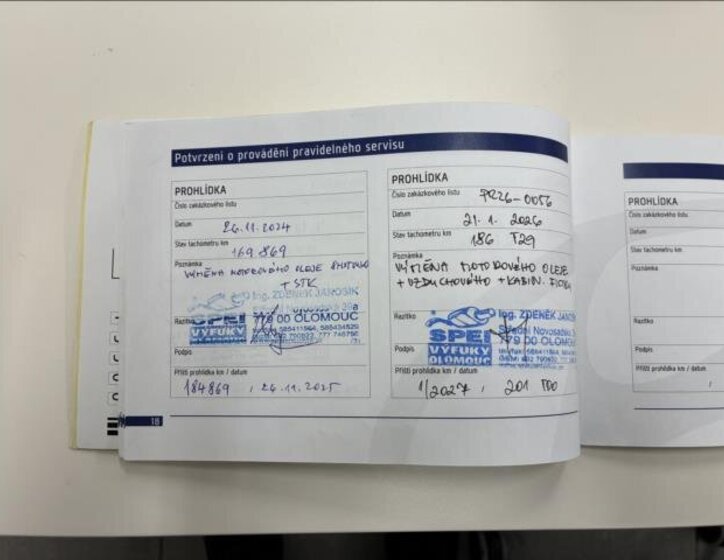 Potvrzení o provádění pravidelného servisu
PROHLÍDKA
Číslo zakázkového listu
Datum
26.11.2024
Stav tachometru km
169 869
Poznámka
VÝMĚNA MOTOROVÉHO OLEJE
+ STK
Ing. ZDENĚK JANOŠÍK
779 00 OLOMOUC
SPEI
VÝFUKY
OLOMOUC
Razítko
Podpis
Příští prohlídka km / datum
184869 , 26.11.2025
PROHLÍDKA
Číslo zakázkového listu
PR26-0056
Datum
21.1.2026
Stav tachometru km
186 729
Poznámka
VÝMĚNA MOTOROVÉHO OLEJE
+ VZDUCHOVÉHO + KABIN.
Razítko
Ing. ZDENĚK JANOŠÍK
779 00 OLOMOUC
SPEI
VÝFUKY
OLOMOUC
Podpis
Příští prohlídka km / datum
1/2027 , 201 700
18
PROHLÍDKA
Číslo zakázkového listu
Datum
Stav tachometru km
Poznámka
Razítko
Podpis
Příští prohlídka km / datum